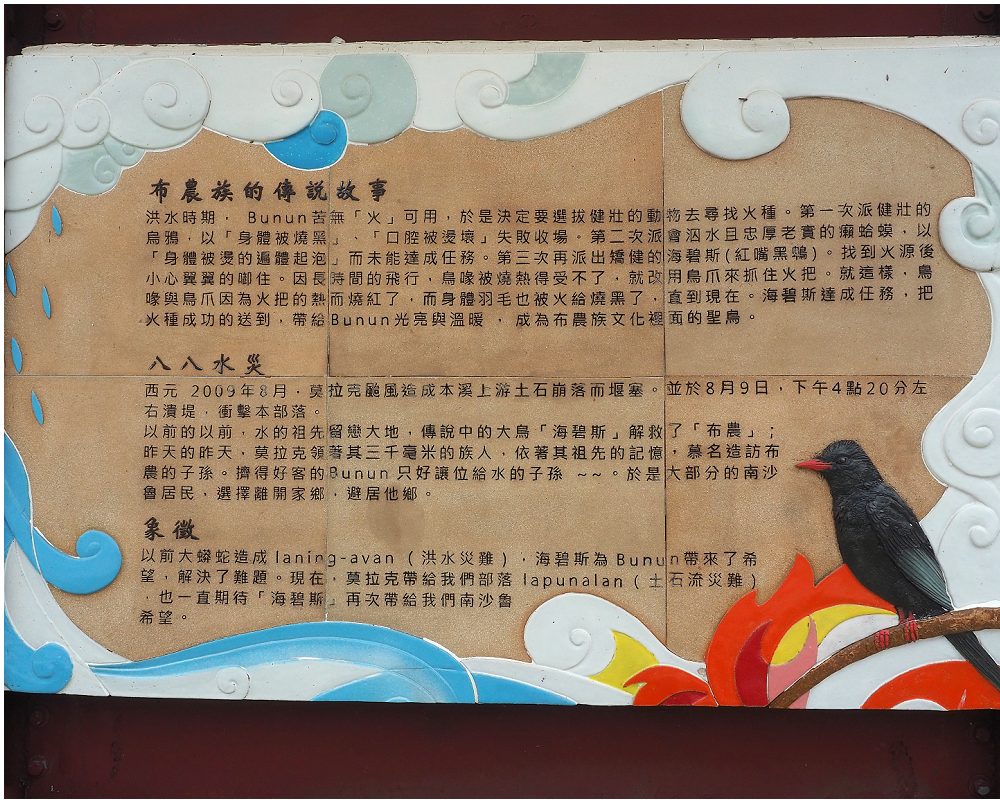 布農族的傳說故事
洪水時期， Bunun苦無「火」可用，於是決定要選拔健壯的動物去尋找火種。第一次派健壯的
烏鴉，以「身體被燒黑」、「口腔被燙壞」失敗收場。第二次派會泅水且忠厚老實的癩蛤蟆，以
「身體被燙的遍體起泡」而未能達成任務。第三次再派出矯健的海碧斯(紅嘴黑鵯)。找到火源後
小心翼翼的啣住。因長時間的飛行，鳥喙被燒熱得受不了，就改用鳥爪來抓住火把。就這樣，鳥
喙與鳥爪因為火把的熱而燒紅了，而身體羽毛也被火給燒黑了，直到現在。海碧斯達成任務，把
火種成功的送到，帶給Bunun光亮與溫暖 ，成為布農族文化裡面的聖鳥。
八八水災
西元 2009年8月，莫拉克颱風造成本溪上游土石崩落而堰塞。並於8月9日，下午4點20分左
右潰堤，衝擊本部落。
以前的以前，水的祖先留戀大地，傳說中的大鳥「海碧斯」解救了「布農」；
昨天的昨天，莫拉克領著其三千毫米的族人，依著其祖先的記憶，慕名造訪布
農的子孫。擠得好客的Bunun只好讓位給水的子孫 ~~。於是大部分的南沙
魯居民，選擇離開家鄉，避居他鄉。
象徵
以前大蟒蛇造成laning-avan（洪水災難），海碧斯為Bunun帶來了希
望，解決了難題。現在，莫拉克帶給我們部落lapunalan（土石流災難）
，也一直期待「海碧斯」再次帶給我們南沙魯
希望。